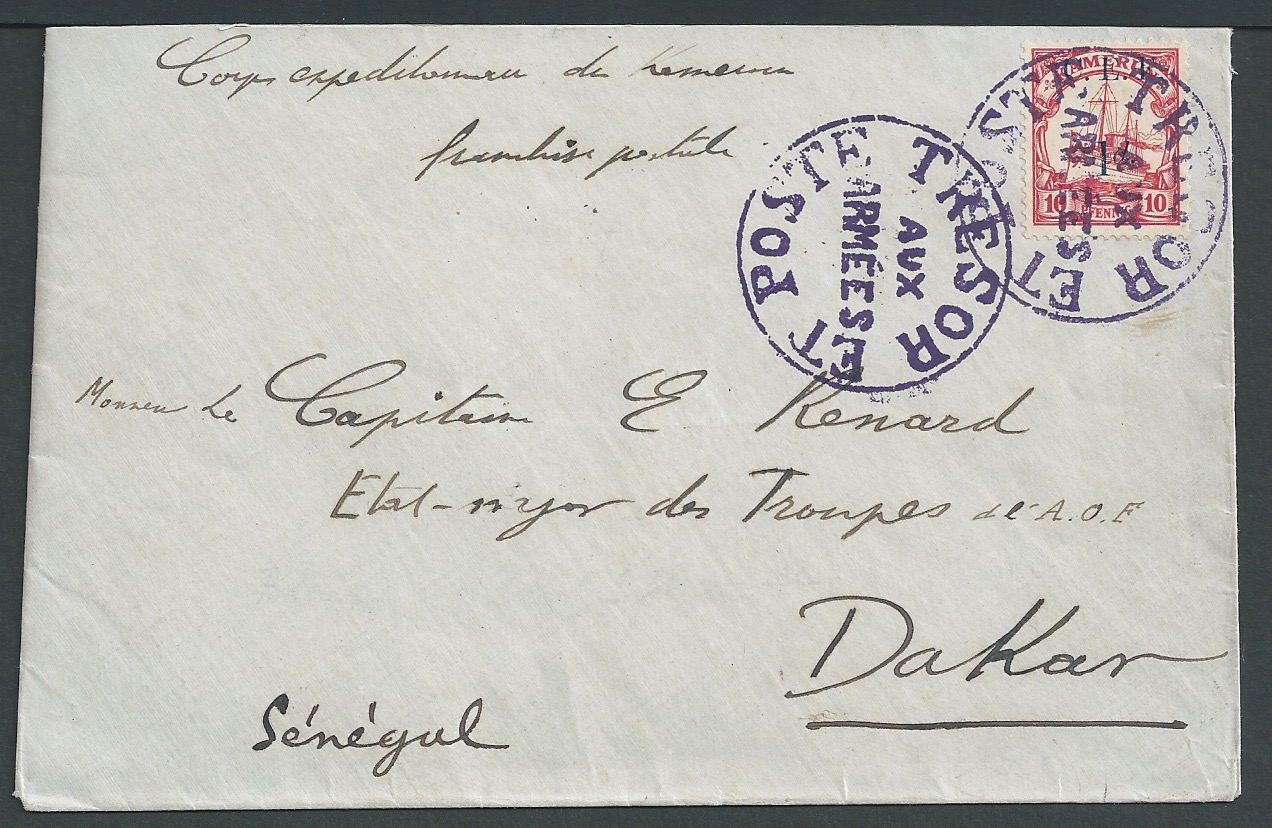 Corps expeditionnaire du Kameroun
franchise postale
KAMERUN
C. E. F.
1d.
10 PFENNIG 10
TRESOR ET POSTE
AUX
ARMÉES
TRESOR ET POSTE
AUX
ARMÉES
Monsieur Le Capitaine E Renard
Etat-major des Troupes de l'A.O.F
Dakar
Sénégal